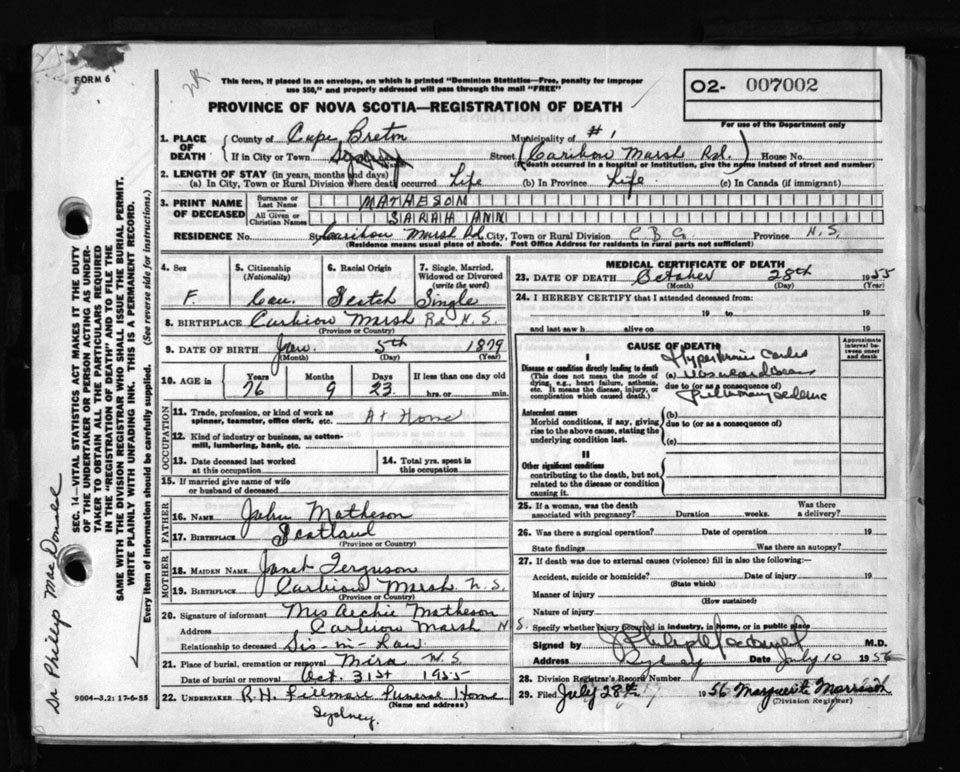 FORM 6
This form, if placed in an envelope, on which is printed "Dominion Statistics—Free, penalty for improper
use $50," and properly addressed will pass through the mail "FREE"
O2- 007002
For use of the Department only
PROVINCE OF NOVA SCOTIA—REGISTRATION OF DEATH
1. PLACE OF DEATH County of Cape Breton Municipality of #1
If in City or Town Sydney Street (Caribou Marsh Rd.) House No.
(If death occurred in a hospital or institution, give the name instead of street and number)
2. LENGTH OF STAY (in years, months and days)
(a) In City, Town or Rural Division where death occurred Life (b) In Province Life. (c) In Canada (if immigrant)
3. PRINT NAME OF DECEASED Surname or Last Name MATHESON
All Given or Christian Names SARAH ANN
RESIDENCE No. Caribou Marsh Rd City, Town or Rural Division C. B. Co. Province N.S.
(Residence means usual place of abode. Post Office Address for residents in rural parts not sufficient)
4. Sex F.
5. Citizenship (Nationality) Can.
6. Racial Origin Scotch
7. Single, Married, Widowed or Divorced (write the word) Single
8. BIRTHPLACE Caribou Marsh Rd N.S.
(Province or Country)
9. DATE OF BIRTH Jan. 5th 1879
(Month) (Day) (Year)
10. AGE in Years 76 Months 9 Days 23 If less than one day old hrs. or min.
OCCUPATION
11. Trade, profession, or kind of work as spinner, teamster, office clerk, etc. At Home
12. Kind of industry or business, as cotton-mill, lumbering, bank, etc.
13. Date deceased last worked at this occupation
14. Total yrs. spent in this occupation
15. If married give name of wife or husband of deceased
FATHER
16. NAME John Matheson
17. BIRTHPLACE Scotland
(Province or Country)
MOTHER
18. MAIDEN NAME Janet Ferguson
19. BIRTHPLACE Caribou Marsh N.S.
(Province or Country)
20. Signature of informant Mrs Archie Matheson
Address Caribou Marsh N S.
Relationship to deceased Sis-in-Law.
21. Place of burial, cremation or removal Mira N.S.
Date of burial or removal Oct. 31st 1955
22. UNDERTAKER R.H. Fillmore Funeral Home
(Name and address)
Sydney.
9004-3.2: 17-6-55
MEDICAL CERTIFICATE OF DEATH
23. DATE OF DEATH October 28th 1955
(Month) (Day) (Year)
24. I HEREBY CERTIFY that I attended deceased from:
19 to 19
and last saw h alive on 19
CAUSE OF DEATH
Approximate interval between onset and death
I
Disease or condition directly leading to death
(This does not mean the mode of dying, e.g., heart failure, asthenia, etc. It means the disease, injury, or complication which caused death.)
(a)
due to (or as a consequence of)
Pulmonary edema
Antecedent causes
Morbid conditions, if any, giving rise to the above cause, stating the underlying condition last.
(b)
due to (or as a consequence of)
(c)
II
Other significant conditions
contributing to the death, but not related to the disease or condition causing it.
25. If a woman, was the death associated with pregnancy? Duration weeks. Was there a delivery?
26. Was there a surgical operation? Date of operation 19
State findings Was there an autopsy?
27. If death was due to external causes (violence) fill in also the following:
Accident, suicide or homicide? Date of injury 19
(State which)
Manner of injury
(How sustained)
Nature of injury
Specify whether injury occurred in industry, in home, or in public place
Signed by M.D.
Address Sydney Date July 10 1956
28. Division Registrar's Record Number
29. Filed July 28th 1956 Marguerite Morrison
(Division Registrar)
SEC. 14—VITAL STATISTICS ACT MAKES IT THE DUTY
OF THE UNDERTAKER OR PERSON ACTING AS UNDER-
TAKER TO OBTAIN ALL THE PARTICULARS REQUIRED
IN THE "REGISTRATION OF DEATH" AND TO FILE THE
SAME WITH THE DIVISION REGISTRAR WHO SHALL ISSUE THE BURIAL PERMIT.
WRITE PLAINLY WITH UNFADING INK. THIS IS A PERMANENT RECORD.
Every item of information should be carefully supplied. (See reverse side for instructions.)
Dr Philip MacDonald